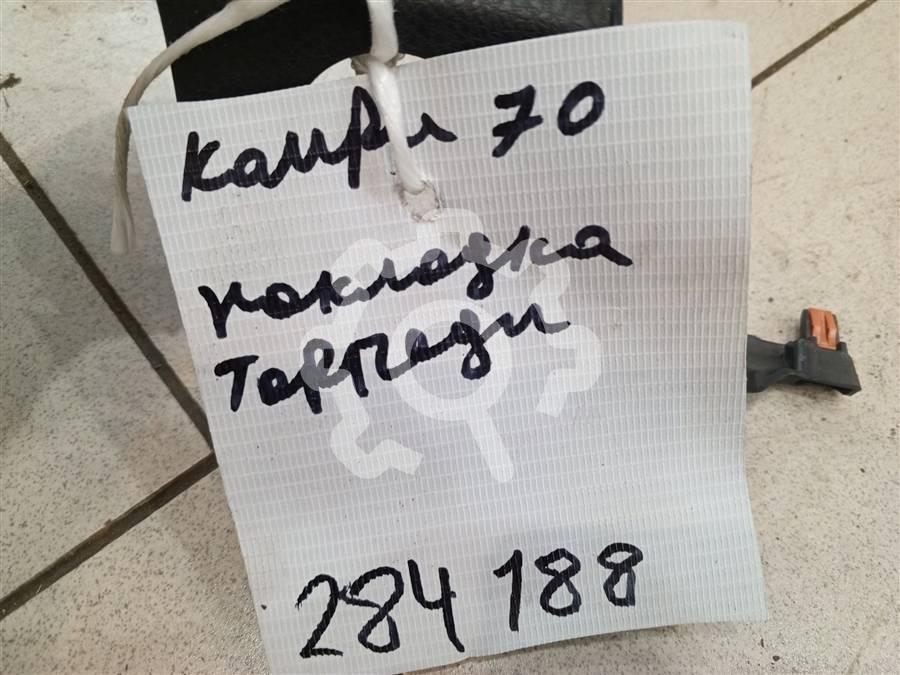 Камри 70
накладка
Торпеди
284 188